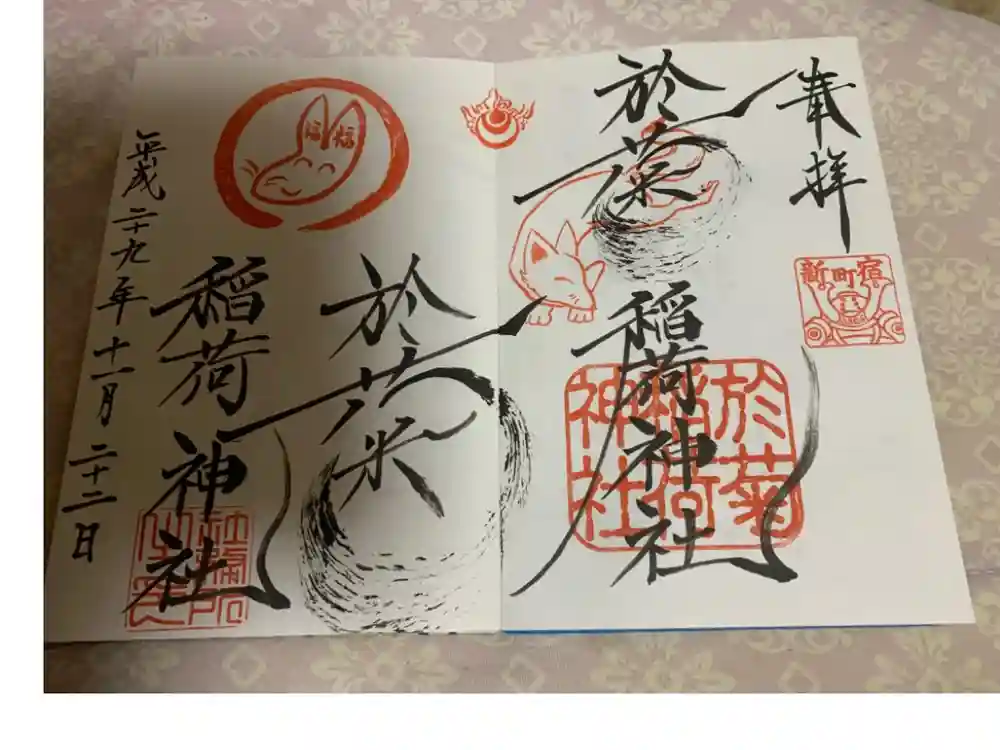 奉拝
新町宿
於菊
稲荷神社
於菊
稲荷
神社
於菊
稲荷神社
福福
平成二十九年十一月二十二日